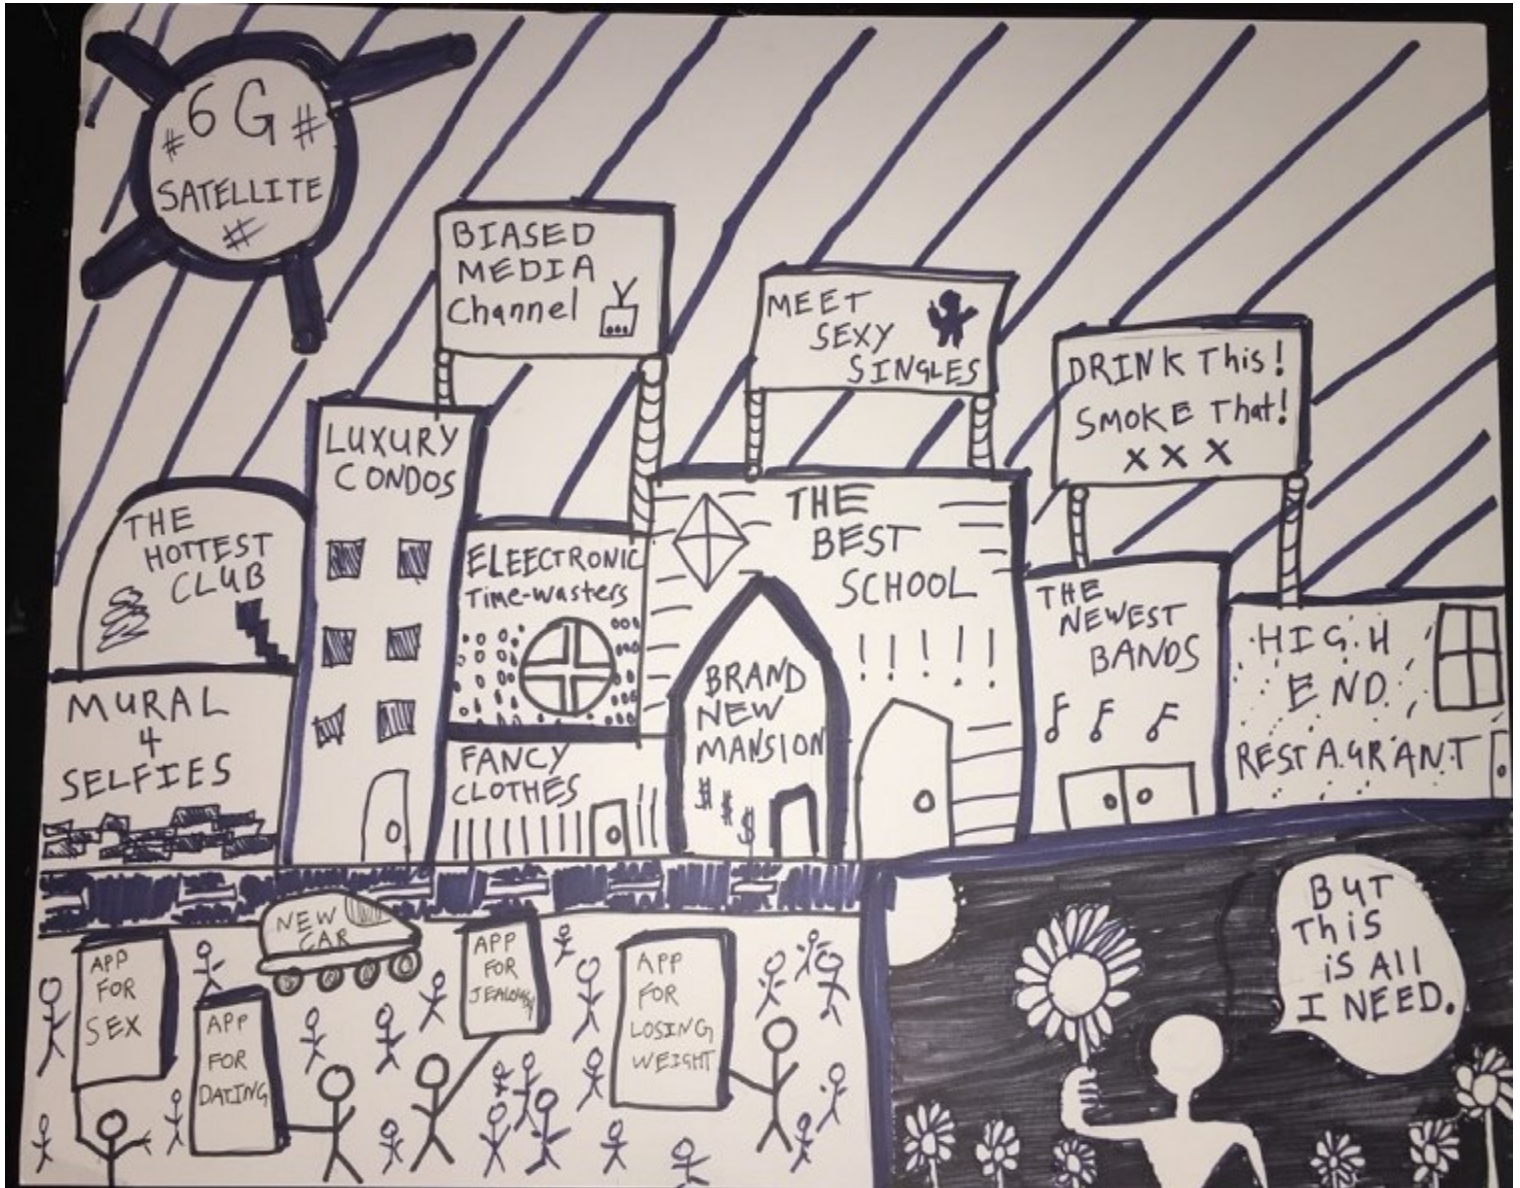 # 6 G #
SATELLITE
#
BIASED
MEDIA
Channel
MEET
SEXY
SINGLES
DRINK This!
SMOKE That!
X X X
THE
HOTTEST
CLUB
LUXURY
CONDOS
ELEECTRONIC
Time-wasters
THE
BEST
SCHOOL
! ! ! ! !
THE
NEWEST
BANDS
HIGH
END
RESTAURANT
MURAL
4
SELFIES
FANCY
CLOTHES
BRAND
NEW
MANSION
$ $ $
NEW
CAR
APP
FOR
SEX
APP
FOR
DATING
APP
FOR
JEALOUSY
APP
FOR
LOSING
WEIGHT
BUT
This
iS All
I NEED.